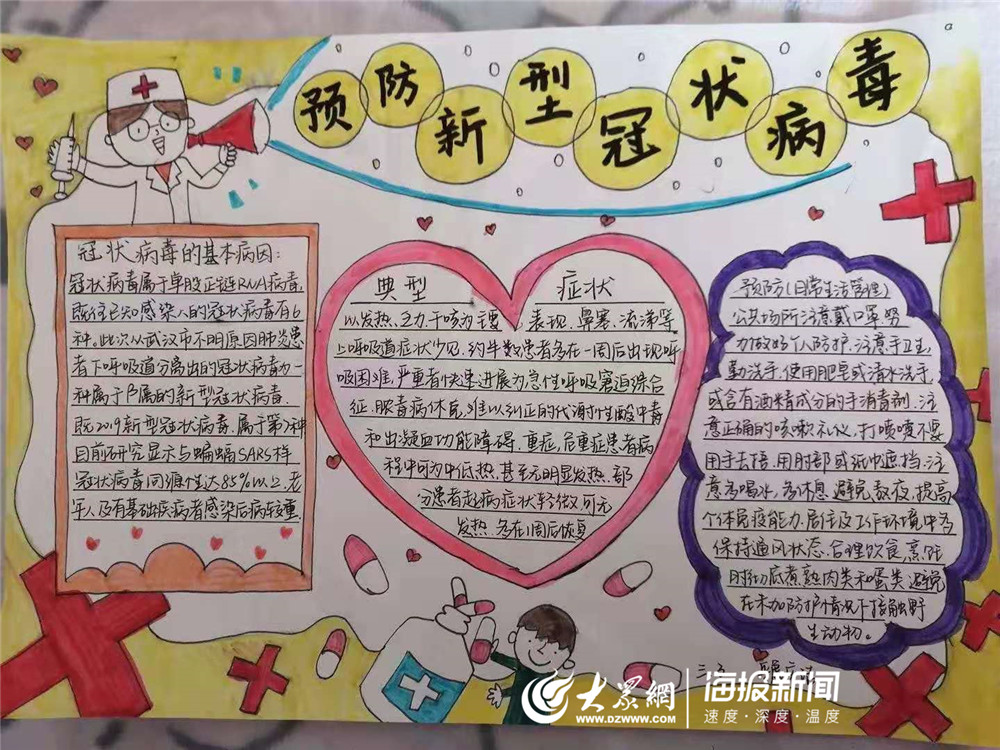 预防新型冠状病毒
冠状病毒的基本病因:
冠状病毒属于单股正链RNA病毒,
既往已知感染人的冠状病毒有6
种。此次从武汉市不明原因肺炎患
者下呼吸道分离出的冠状病毒为一
种属于β属的新型冠状病毒.
既2019新型冠状病毒.属于第7种
目前研究显示与蝙蝠SARS样
冠状病毒同源性达85%以上.老
年人及有基础疾病者感染后病较重.
典型 症状
以发热.乏力.干咳为主要表现.鼻塞.流涕等
上呼吸道症状少见.约半数患者多在一周后出现呼
吸困难,严重者快速进展为急性呼吸窘迫综合
征.脓毒病休克,难以纠正的代谢性酸中毒
和出凝血功能障碍.重症.危重症患者病
程中可为中低热.甚至无明显发热.部
分患者起病症状轻微可无
发热.多在1周后恢复
预防(日常生活管理)
公共场所注意戴口罩努
力做好个人防护.注意手卫生,
勤洗手.使用肥皂或清水洗手,
或含有酒精成分的手消毒剂.注
意正确的咳嗽礼仪,打喷嚏不要
用手去捂.用肘部或纸巾遮挡.注
意多喝水,多休息.避免熬夜,提高
个体免疫能力.居住及工作环境中多
保持通风状态.合理饮食.烹饪
时彻底煮熟肉类和蛋类.避免
在未加防护情况下接触野
生动物。
大众网
WWW.DZWWW.COM
海报新闻
速度·深度·温度